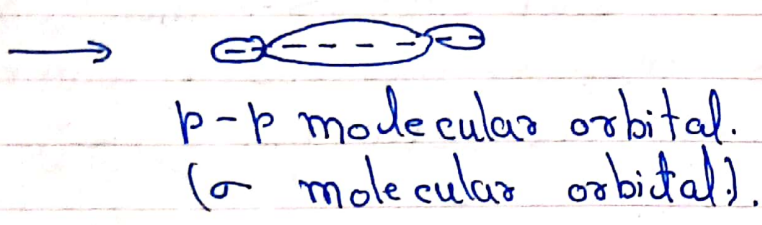 p-p molecular orbital.
(σ molecular orbital).